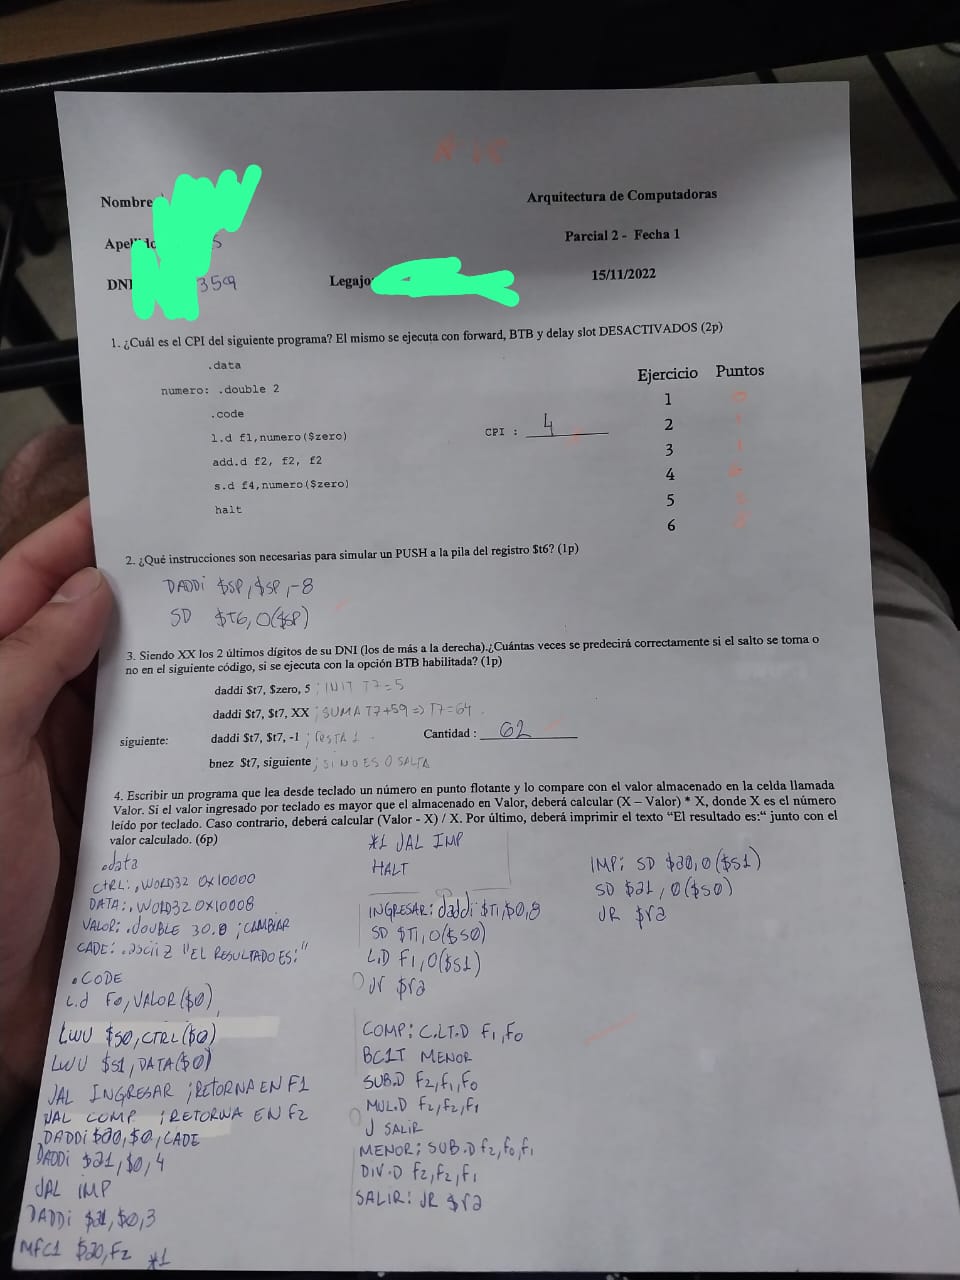 Nombre
Arquitectura de Computadoras
Parcial 2 - Fecha 1
DNI 3509
Legajo
15/11/2022
1. ¿Cuál es el CPI del siguiente programa? El mismo se ejecuta con forward, BTB y delay slot DESACTIVADOS (2p)
.data
numero: .double 2
.code
l.d f1,numero($zero)
add.d f2, f2, f2
s.d f4,numero($zero)
halt
CPI : 4
Ejercicio Puntos
1
2
3
4
5
6
2. ¿Qué instrucciones son necesarias para simular un PUSH a la pila del registro $t6? (1p)
DADDi $SP,$SP,-8
SD $T6,0($SP)
3. Siendo XX los 2 últimos dígitos de su DNI (los de más a la derecha).¿Cuántas veces se predecirá correctamente si el salto se toma o
no en el siguiente código, si se ejecuta con la opción BTB habilitada? (1p)
daddi $t7, $zero, 5 ; INIT T7=5
daddi $t7, $t7, XX ; SUMA T7+59 => T7=64
siguiente: daddi $t7, $t7, -1 ; resta 1
Cantidad : 62
bnez $t7, siguiente ; SI NO ES 0 SALTA
4. Escribir un programa que lea desde teclado un número en punto flotante y lo compare con el valor almacenado en la celda llamada
Valor. Si el valor ingresado por teclado es mayor que el almacenado en Valor, deberá calcular (X – Valor) * X, donde X es el número
leído por teclado. Caso contrario, deberá calcular (Valor - X) / X. Por último, deberá imprimir el texto “El resultado es:“ junto con el
valor calculado. (6p)
.data
CTRL: .WORD32 0x10000
DATA: .WORD32 0x10008
VALOR: .DOUBLE 30.0 ;CAMBIAR
CADE: .asciiz "EL RESULTADO ES:"
.CODE
L.d F0,VALOR($0)
LWU $S0,CTRL($0)
LWU $S1,DATA($0)
JAL INGRESAR ;RETORNA EN F1
JAL COMP ;RETORNA EN F2
DADDi $a0,$0,CADE
DADDi $a1,$0,4
JAL IMP
DADDi $a1,$0,3
MFC1 $a0,F2 *1
*1 JAL IMP
HALT
INGRESAR: daddi $T1,$0,8
SD $T1,0($S0)
L.D F1,0($S1)
Jr $ra
COMP: C.LT.D F1,F0
BC1T MENOR
SUB.D F2,F1,F0
MUL.D F2,F2,F1
J SALIR
MENOR: SUB.D F2,F0,F1
DIV.D F2,F2,F1
SALIR: JR $ra
IMP: SD $a0,0($S1)
SD $a1,0($S0)
JR $ra